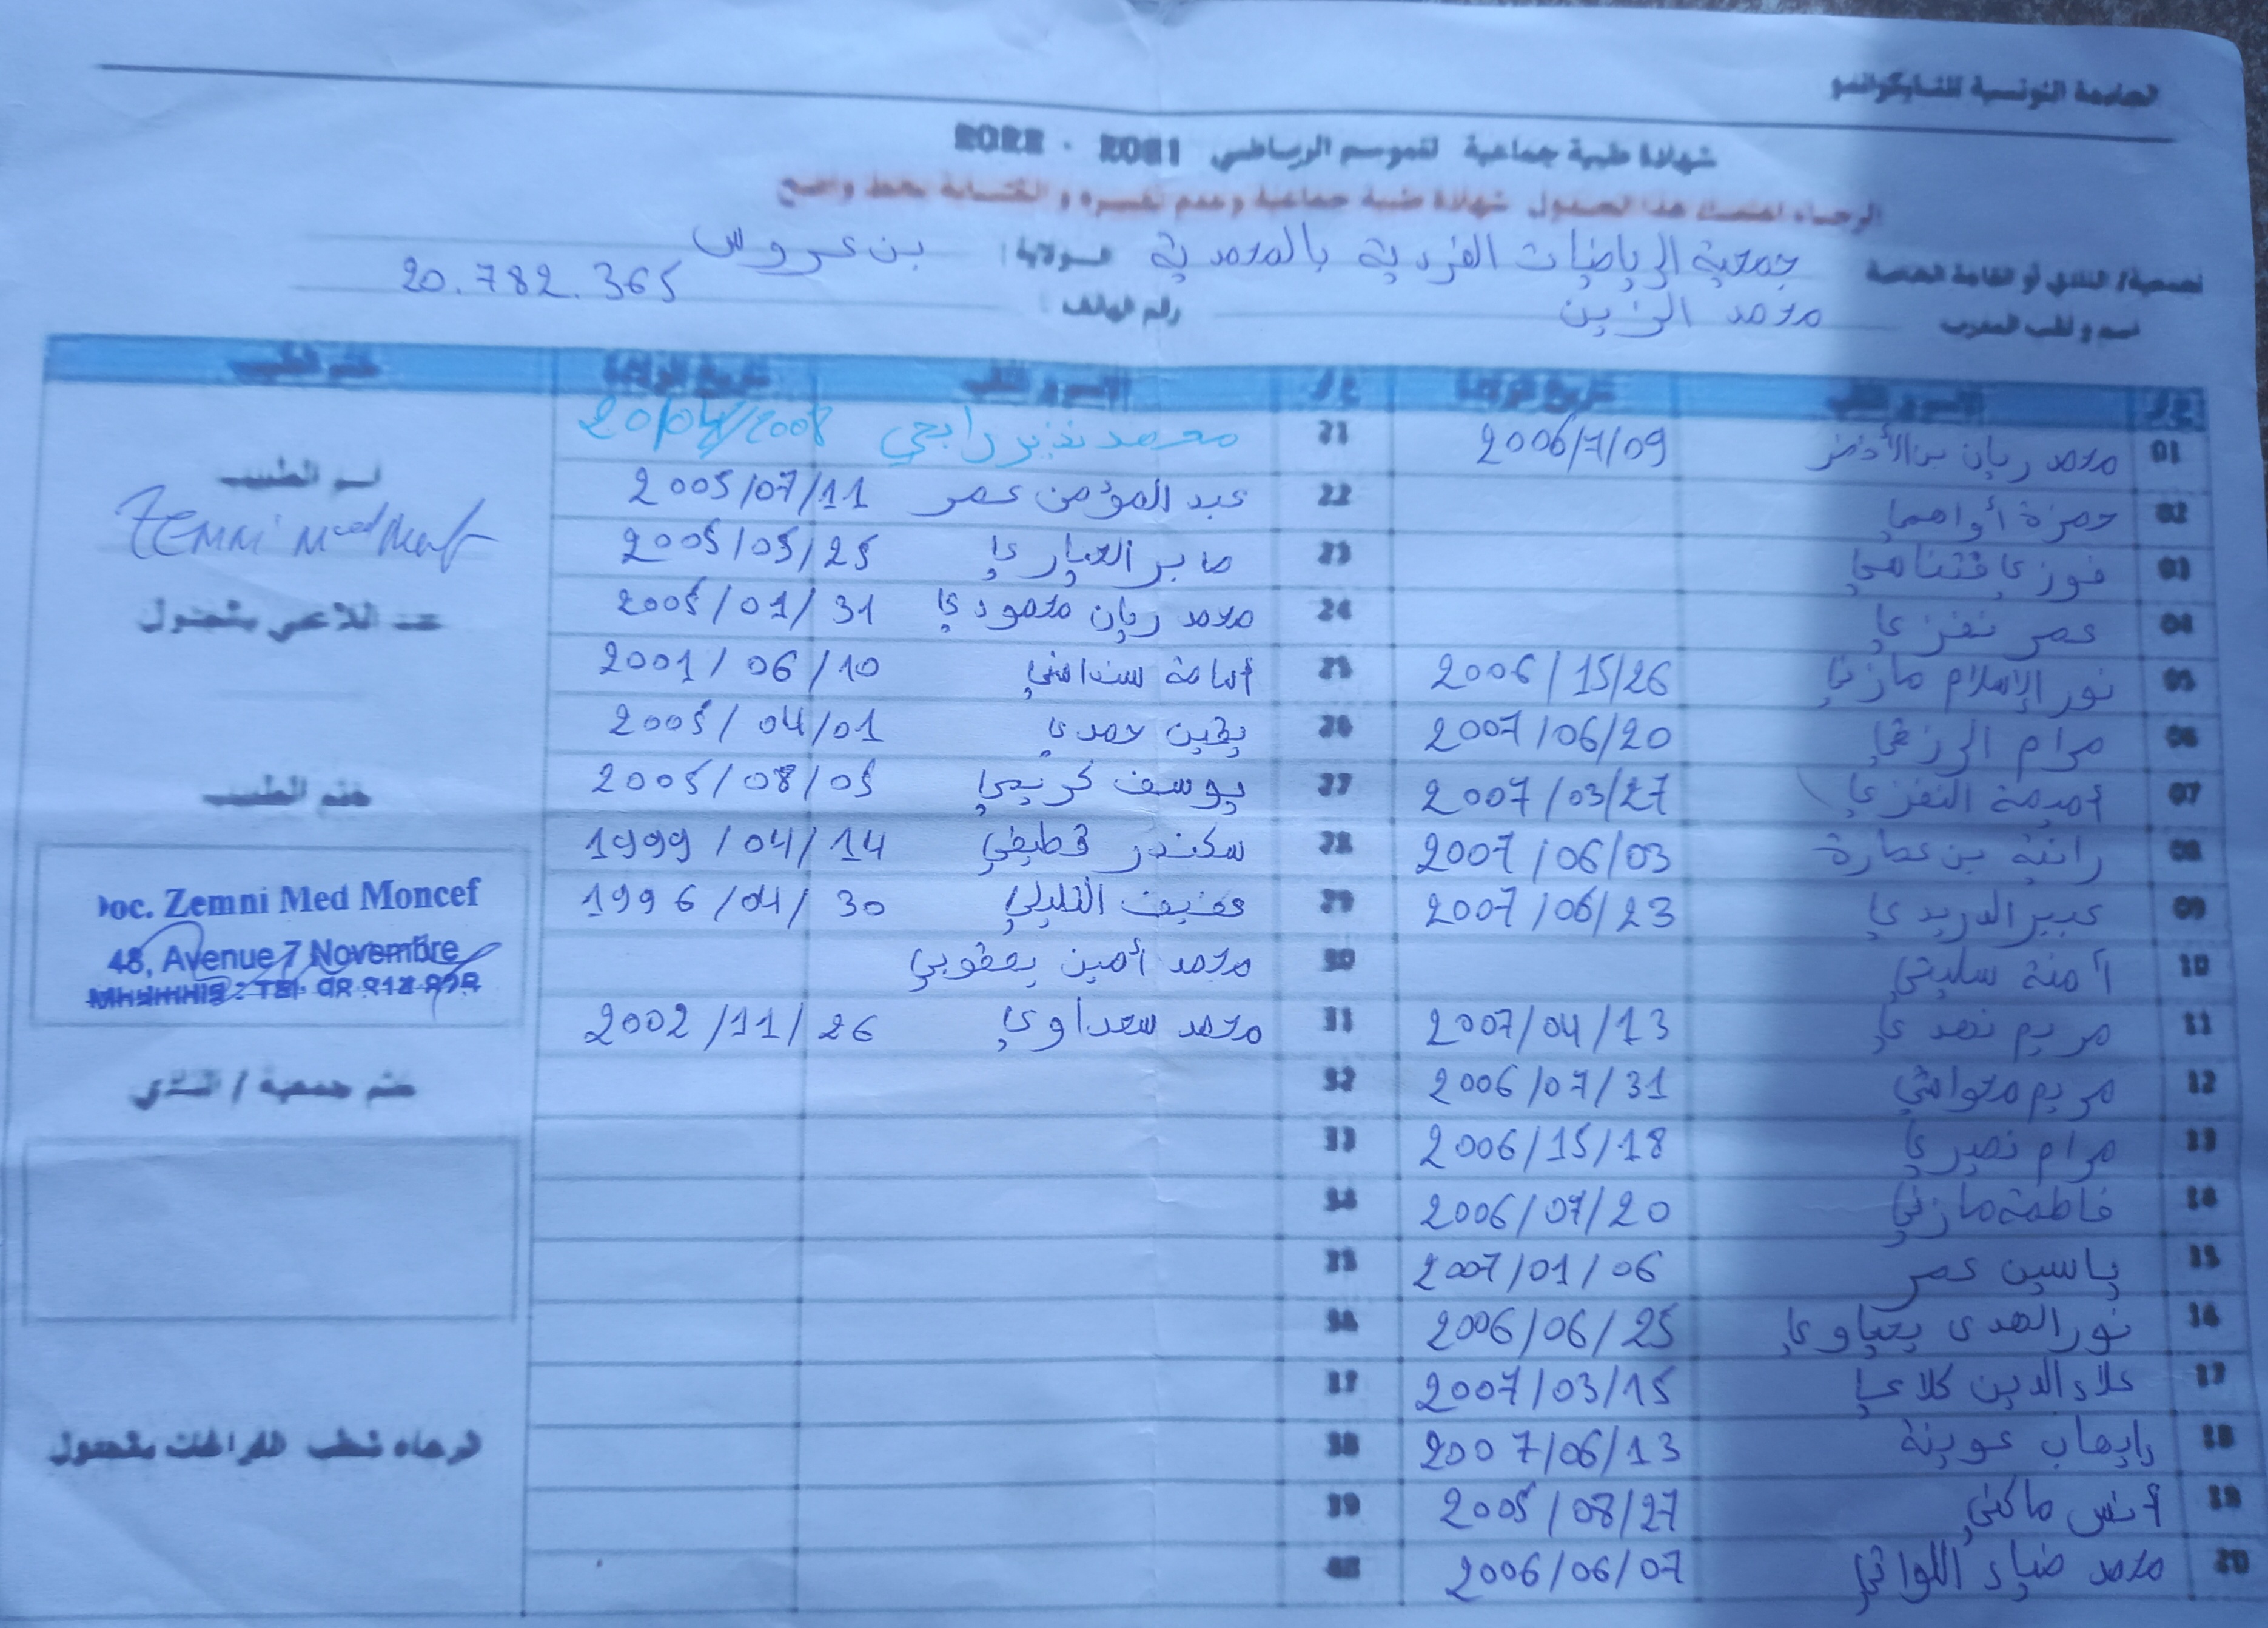 الجامعة التونسية للتايكواندو
شهادة طبية جماعية للموسم الرياضي 2021 - 2022
الرجاء اعتماد هذا الجدول شهادة طبية جماعية وعدم تغييره و الكتابة بخط واضح
جمعية/ النادي أو القاعة الخاصة جمعية الرياضات الفردية بالمحمدية الولاية: بن عروس
اسم و لقب المدرب محمد الزين رقم الهاتف: 20.782.365
ع/ر الاسم و اللقب تاريخ الولادة ع/ر الاسم و اللقب تاريخ الولادة ختم الطبيب
01 محمد ريان بن الأخضر 2006/7/09 21 محمد نذير رابحي 20/04/2008
اسم الطبيب
02 حمزة 22 عبد المؤمن عمر 2005/07/11
Zemni Med Moncef
03 فوزي 23 صابر العياري 2005/05/25
04 عمر نفزي 24 محمد ريان محمودي 2005/01/31
عدد اللاعبين بالجدول
05 نور الإسلام مازني 2006/15/26 25 أسامة 2001/06/10
06 مرام الرزقي 2007/06/20 26 يحيى حمدي 2005/04/01
07 أميمة النفزي 2007/03/27 27 يوسف كريمي 2005/08/05
ختم الطبيب
08 رانية بن عمارة 2007/06/03 28 سكندر قطيفي 1999/04/14
09 عبير الدريدي 2007/06/23 29 عفيف 1996/04/30
Doc. Zemni Med Moncef
48, Avenue 7 Novembre
10 آمنة سليتي 30 محمد أمين يعقوبي
11 مريم 2007/04/13 31 محمد سعداوي 2002/11/26
12 مريم 2006/07/31 32
ختم جمعية / النادي
13 مرام نصيري 2006/15/18 33
14 فاطمة مازني 2006/07/20 34
15 ياسين عمر 2007/01/06 35
16 نور الهدى يحياوي 2006/06/25 36
17 علاء الدين كلاعي 2007/03/15 37
18 رايهاب عوينة 2007/06/13 38
الرجاء شطب الفراغات بالجدول
19 أنس ماكني 2005/08/27 39
20 محمد ضياء اللواتي 2006/06/07 40